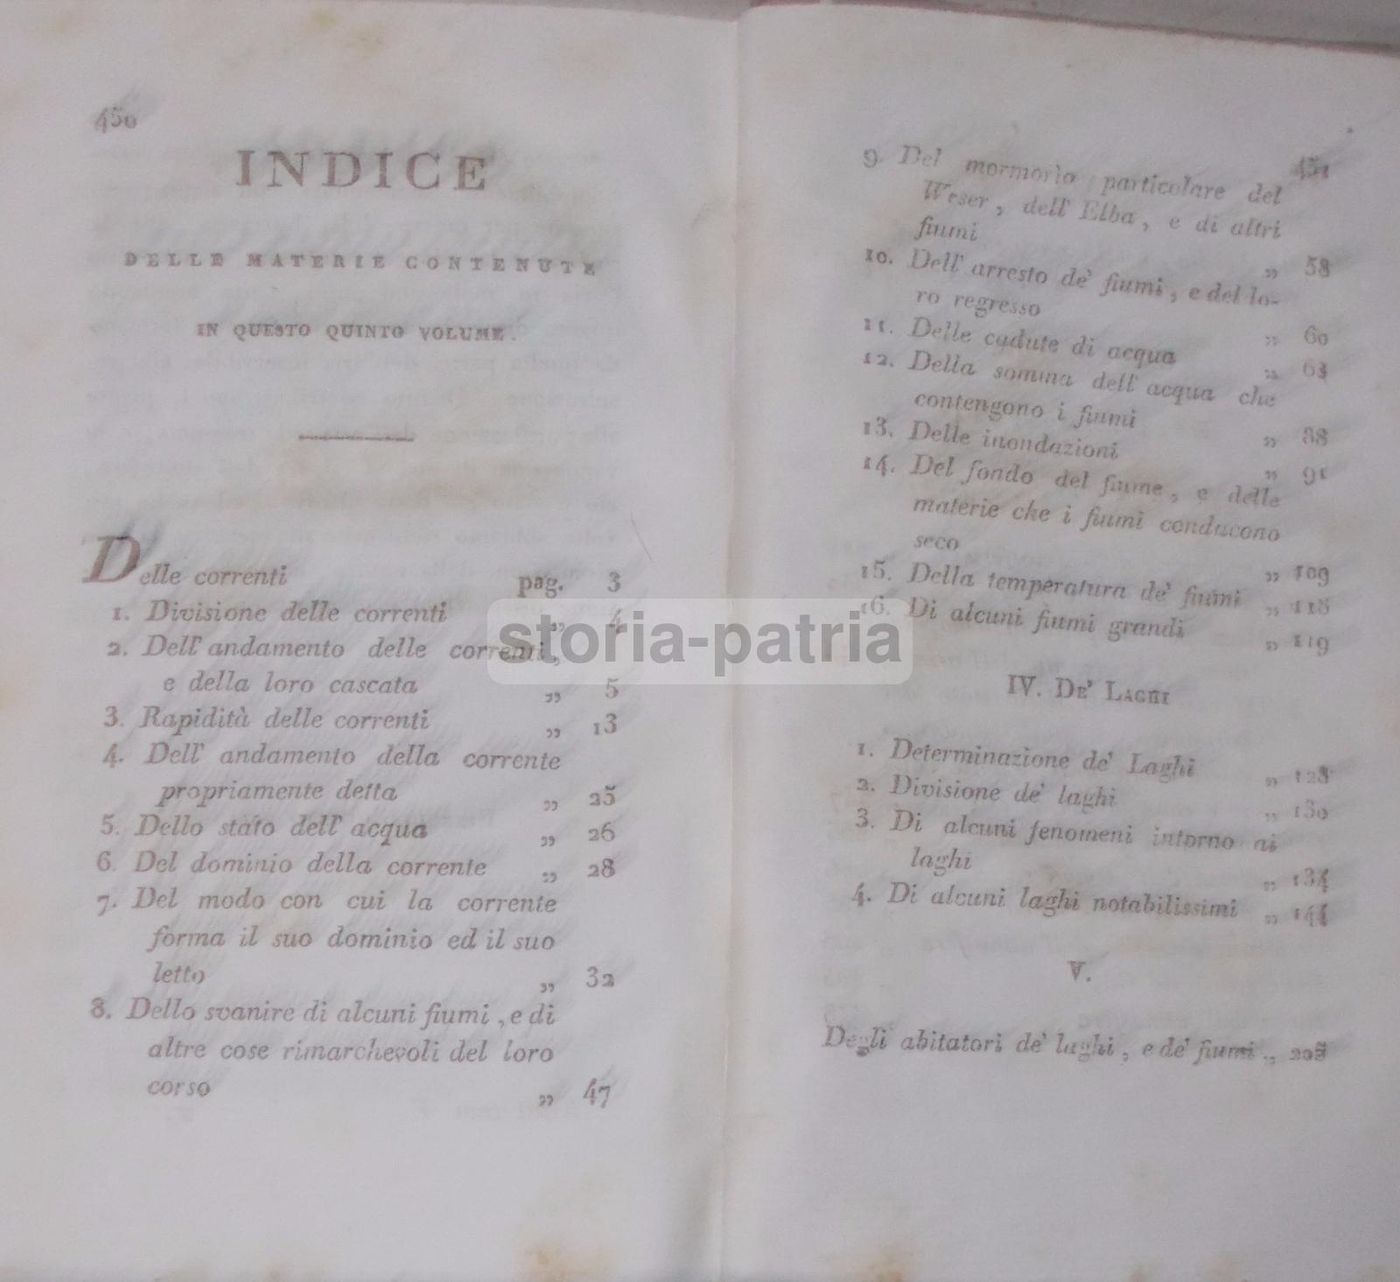 450
INDICE
DELLE MATERIE CONTENUTE
IN QUESTO QUINTO VOLUME.
Delle correnti pag. 3
1. Divisione delle correnti „ 4
2. Dell' andamento delle correnti,
e della loro cascata „ 5
3. Rapidità delle correnti „ 13
4. Dell' andamento della corrente
propriamente detta „ 25
5. Dello stato dell' acqua „ 26
6. Del dominio della corrente „ 28
7. Del modo con cui la corrente
forma il suo dominio ed il suo
letto „ 32
8. Dello svanire di alcuni fiumi, e di
altre cose rimarchevoli del loro
corso „ 47
451
9 Del mormorio particolare del
Weser, dell' Elba, e di altri
fiumi „ 58
10. Dell' arresto de' fiumi, e del lo-
ro regresso „ 60
11. Delle cadute di acqua „ 63
12. Della somma dell' acqua che
contengono i fiumi „ 88
13. Delle inondazioni „ 91
14. Del fondo del fiume, e delle
materie che i fiumi conducono
seco „ 109
15. Della temperatura de' fiumi „
16. Di alcuni fiumi grandi „ 119
IV. DE' LAGHI
1. Determinazione de' Laghi „ 128
2. Divisione de' laghi „ 130
3. Di alcuni fenomeni intorno ai
laghi „ 134
4. Di alcuni laghi notabilissimi „ 144
V.
Degli abitatori de' laghi, e de' fiumi „
storia-patria